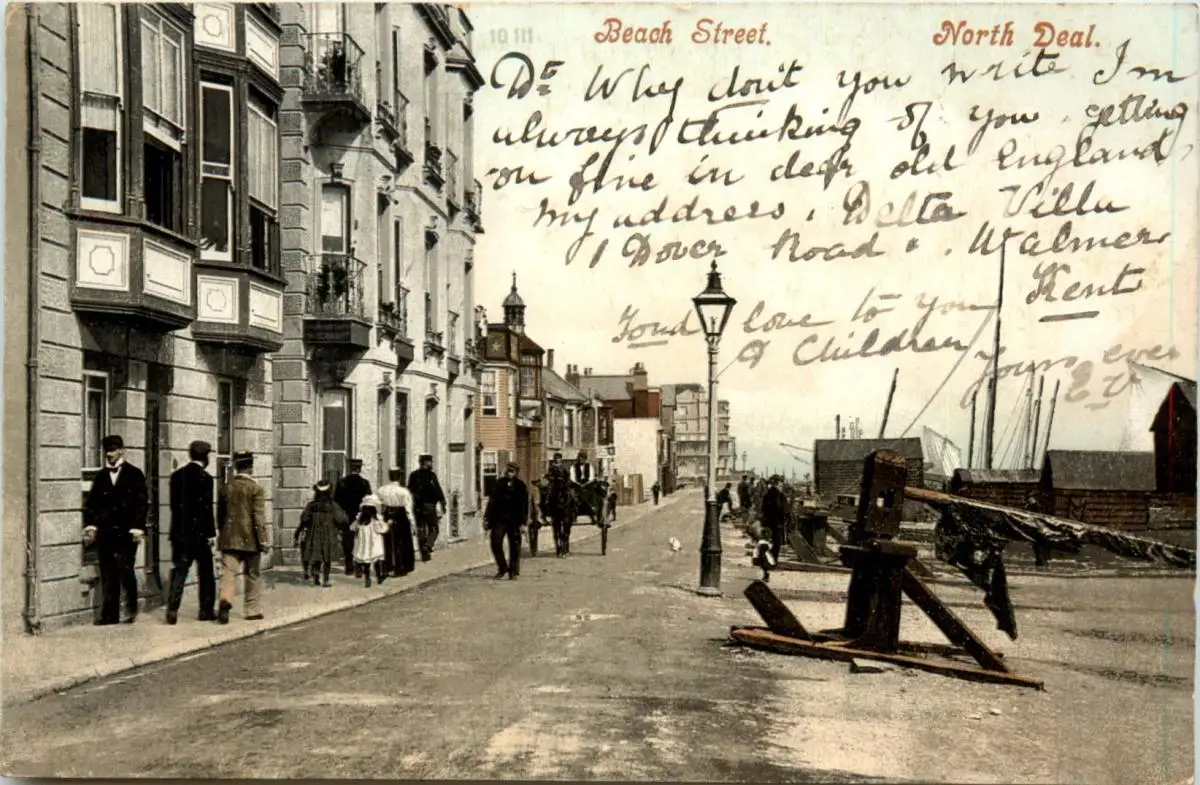 10111
Beach Street. North Deal.
Dr Why don't you write I'm
always thinking of you. getting
on fine in dear old England,
my address, Delta Villa
1 Dover Road, Walmer
Kent
Fond love to you
& Children
yours ever